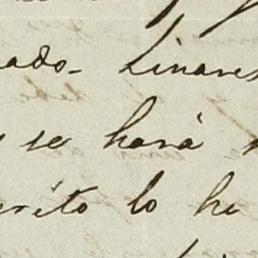 ado_ Linares
se hará
rito lo he